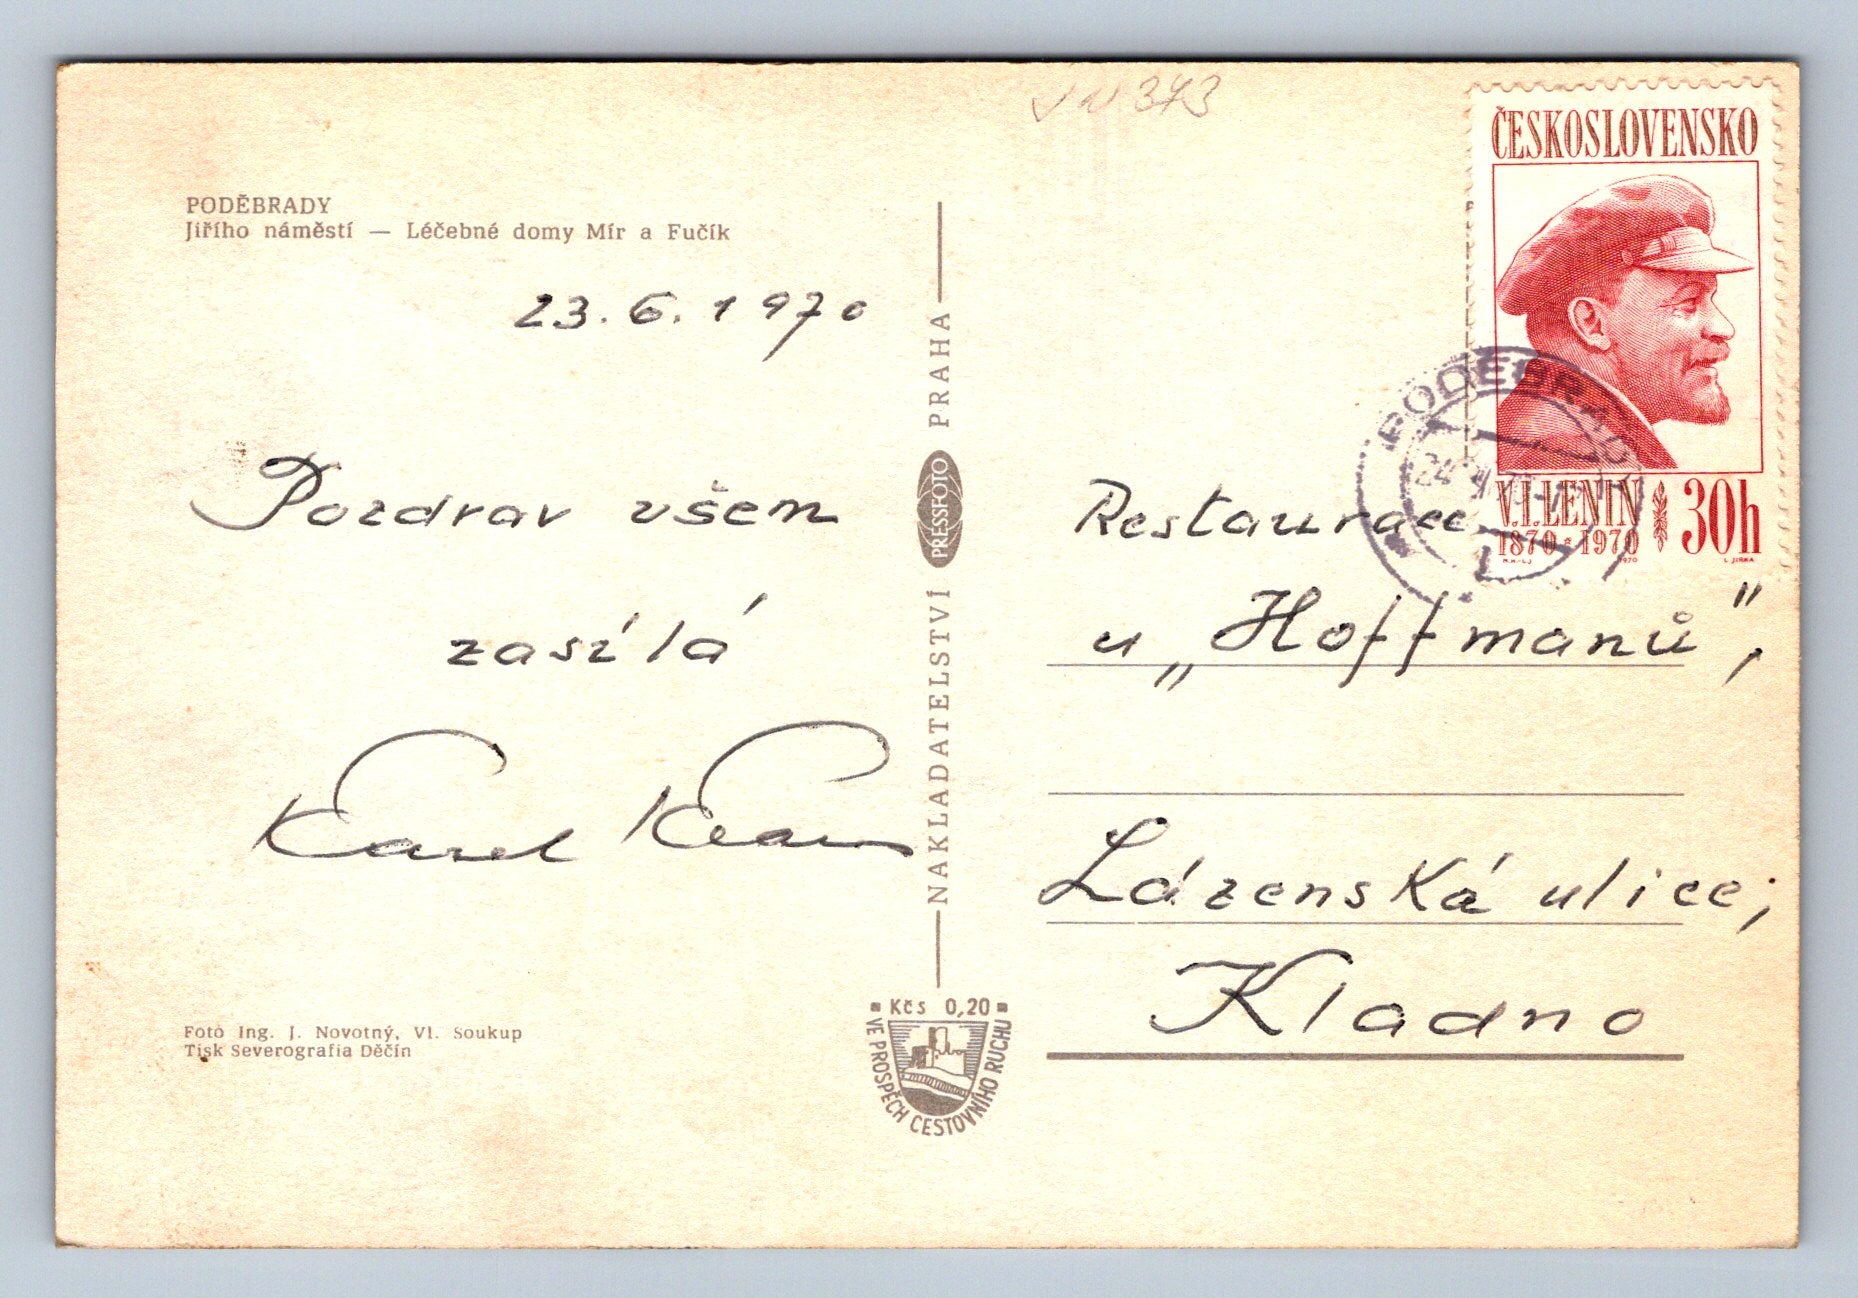 PODĚBRADY
Jiřího náměstí — Léčebné domy Mír a Fučík
23. 6. 1970
Pozdrav všem
zasílá
Karel
Foto Ing. J. Novotný, Vl. Soukup
Tisk Severografia Děčín
NAKLADATELSTVÍ PRESSFOTO PRAHA
Kčs 0,20
VE PROSPĚCH CESTOVNÍHO RUCHU
343
ČESKOSLOVENSKO
V.I.LENIN 30h
1870 * 1970
1970 L. JIRKA
PODĚBRADY
Restaurace
u „Hoffmanů",
Lázenská ulice;
Kladno